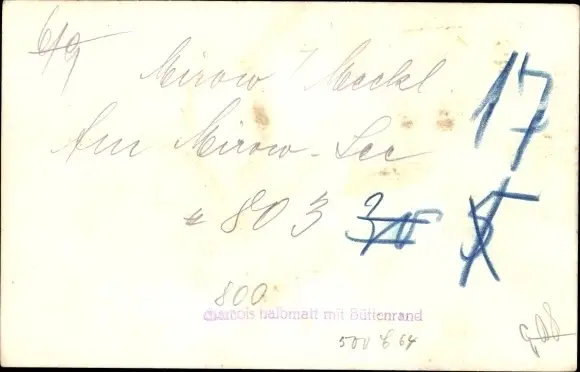 6/9
Mirow / Meckl.
Am Mirow-See
17
# 803
5
800
Chamois halbmatt mit Büttenrand
500 64